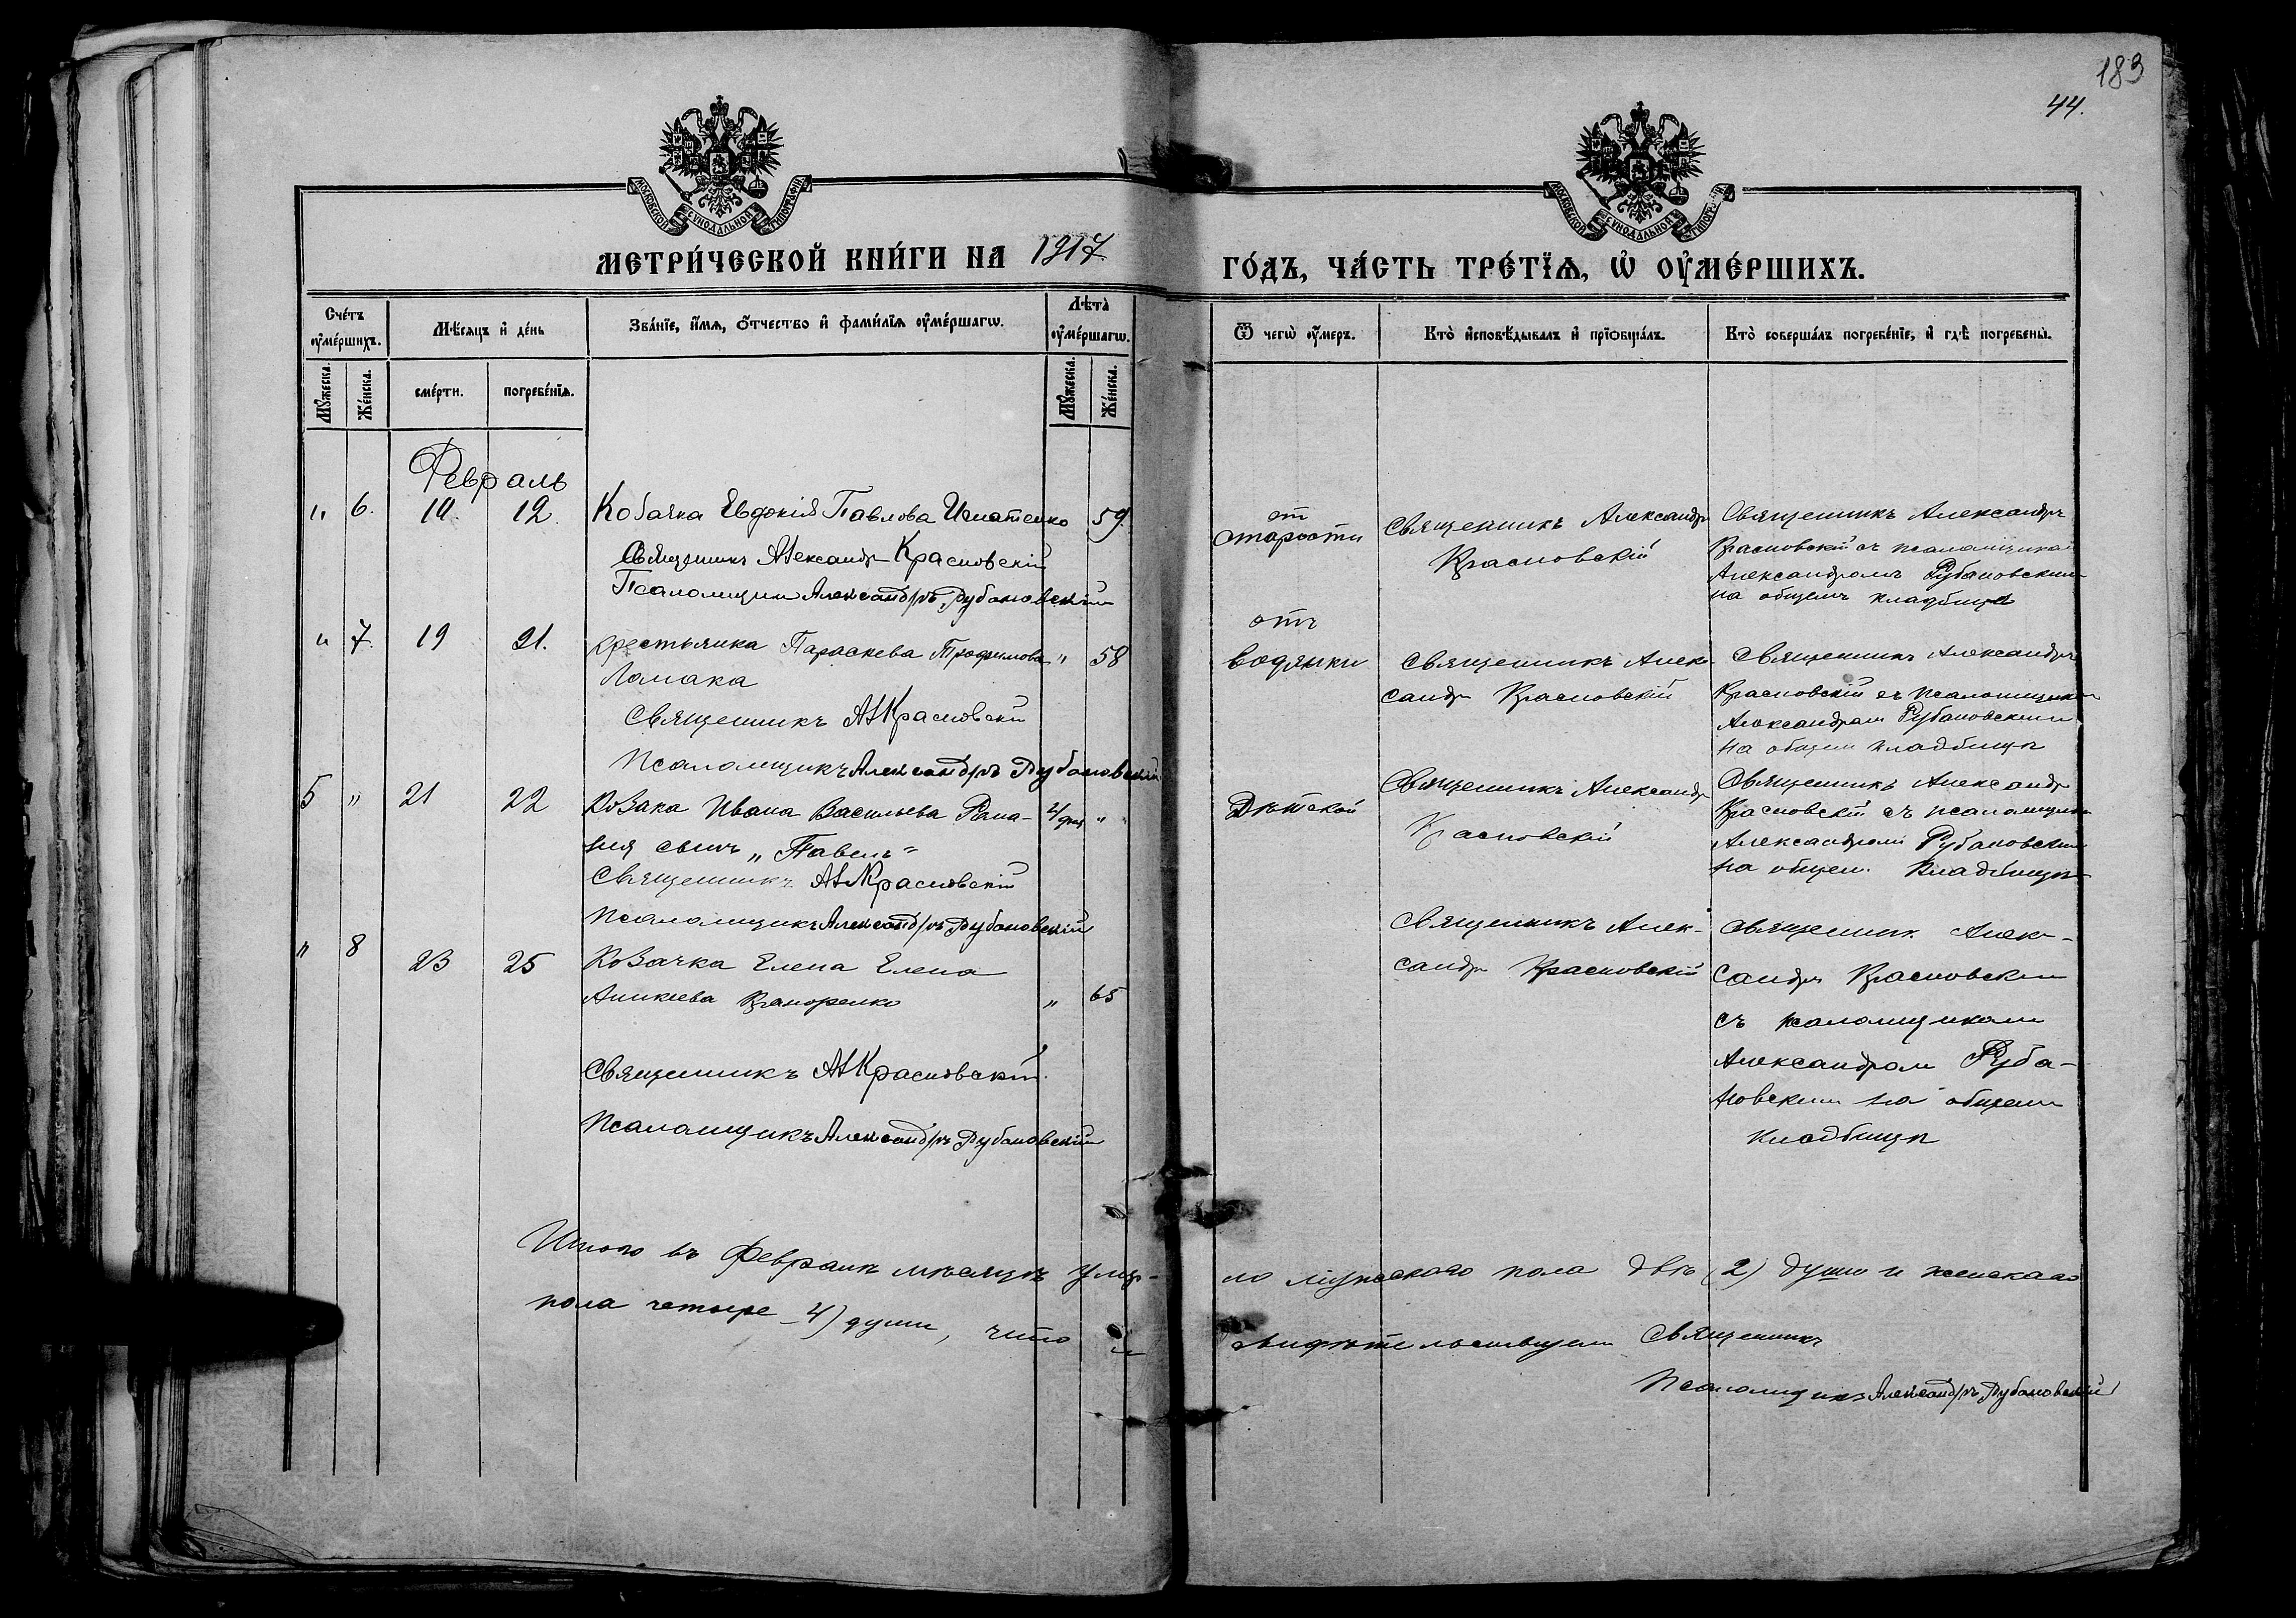 183
44.
МОСКОВСКОЙ СУНОДАЛЬНОЙ ТИПОГРАФІИ
МОСКОВСКОЙ СУНОДАЛЬНОЙ
МЕТРИ́ЧЕСКОЙ КНИ́ГИ НА 1917
ГО́ДЪ, ЧА́СТЬ ТРЕ́ТІѦ, Ѡ҆ ОУ҆МЕ́РШИХЪ.
Сче́тъ оу҆ме́ршихъ.
Мѣ́сяцъ и҆ де́нь
Зва́нїе, и҆́мѧ, ѻ҆́тчество и҆ фами́лїѧ оу҆ме́ршагѡ.
Лѣ́та оу҆ме́ршагѡ.
Ѿ чегѡ̀ оу҆́меръ.
Кто̀ и҆сповѣ́дывалъ и҆ прїѡбща́лъ.
Кто̀ соверша́лъ погребе́нїе, и҆ гдѣ̀ погребены̀.
Мꙋ́жеска.
Же́нска.
сме́рти.
погребе́нїѧ.
Мꙋ́жеска.
Же́нска.
Февраль
" 6. 10 12. Козачка Евдокія Павлова Игнатенко 59.
Священникъ Александр Красновскій
Псаломщик Александръ Рубановскій
от
старости
Священникъ Александр
Красновскій
Священникъ Александръ
Красновскій съ псаломщиком
Александромъ Рубановским
на общемъ кладбище
" 7. 19 21. Крестьянка Параскева Трофимова " 58
Ломака
Священникъ Ал Красновскій
Псаломщикъ Александръ Рубановскій
отъ
водянки
Священникъ Алек-
сандр Красновскій
Священникъ Александръ
Красновскій съ псаломщиком
Александром Рубановским
на общем кладбищѣ
5 " 21 22 Козака Ивана Васильева
сынъ „Павелъ“
4 дня "
Священникъ Ал Красновскій
Псаломщикъ Александръ Рубановскій
Дѣтской
Священникъ Александр
Красновскій
Священникъ Александр
Красновскій съ псаломщиком
Александром Рубановским
на общем. Кладбищѣ
" 8 23 25 Козачка Елена Елена
" 65
Священникъ Ал Красновскій.
Псаломщикъ Александръ Рубановскій
Священникъ Алек-
сандр Красновскій
Священник Алек-
сандръ Красновскій
съ псаломщиком
Александром Руба-
новским на общем
кладбищѣ
Итого въ Февралѣ мѣсяцѣ умер-
ло мужескаго пола двѣ (2) души и женскаго
пола четыре 4) души, что и
свидѣтельствуем Священникъ
Псаломщикъ Александръ Рубановскій